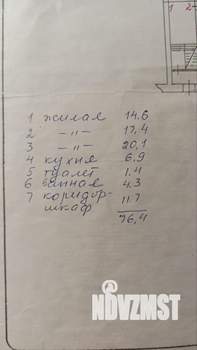 1 2
1 жилая 14.6
2 –"– 17,4
3 –"– 20,1
4 кухня 6.9
5 туалет 1.4
6 ванная 4.3
7 коридор-
шкаф 11.7
76,4
NDVZMST